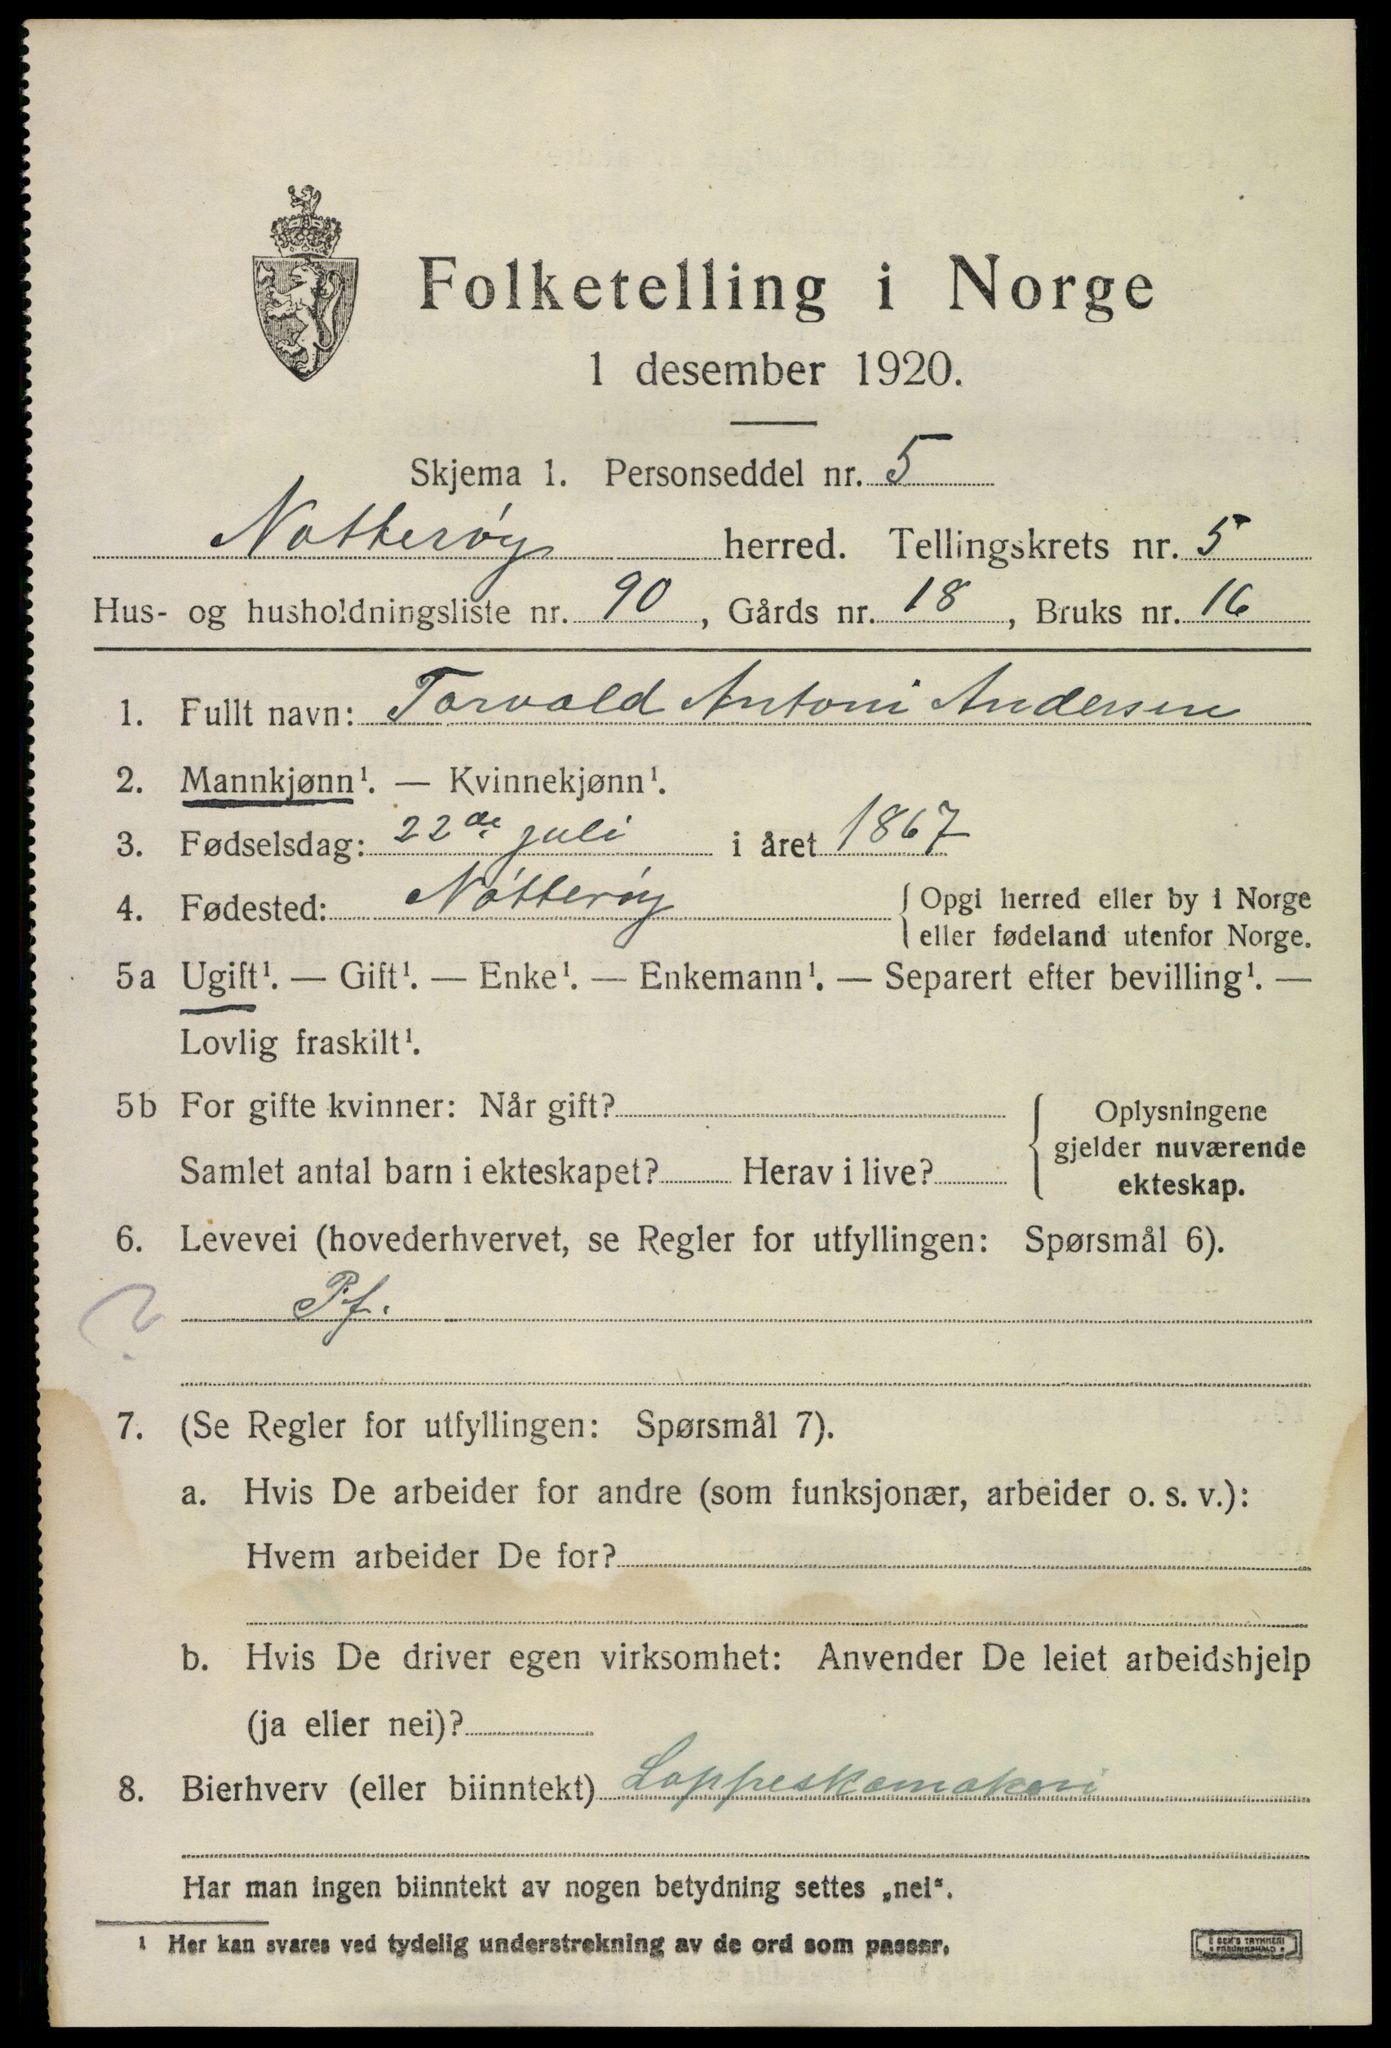 Folketelling i Norge
1 desember 1920.
Skjema 1. Personseddel nr. 5
Nøtterøy herred. Tellingskrets nr. 5
Hus- og husholdningsliste nr. 90, Gårds nr. 18, Bruks nr. 16
1. Fullt navn: Torvald Antoni Andersen
2. Mannkjønn¹. — Kvinnekjønn¹.
3. Fødselsdag: 22de juli i året 1867
4. Fødested: Nøtterøy { Opgi herred eller by i Norge
eller fødeland utenfor Norge.
5a Ugift¹. — Gift¹. — Enke¹. — Enkemann¹. — Separert efter bevilling¹. —
Lovlig fraskilt¹.
5b For gifte kvinner: Når gift?
Samlet antal barn i ekteskapet? Herav i live?
{ Oplysningene
gjelder nuværende
ekteskap.
6. Levevei (hovederhvervet, se Regler for utfyllingen: Spørsmål 6).
? P.f.
7. (Se Regler for utfyllingen: Spørsmål 7).
a. Hvis De arbeider for andre (som funksjonær, arbeider o. s. v.):
Hvem arbeider De for?
b. Hvis De driver egen virksomhet: Anvender De leiet arbeidshjelp
(ja eller nei)?
8. Bierhverv (eller biinntekt) Lappeskomakeri
Har man ingen biinntekt av nogen betydning settes „nei“.
¹ Her kan svares ved tydelig understrekning av de ord som passer.